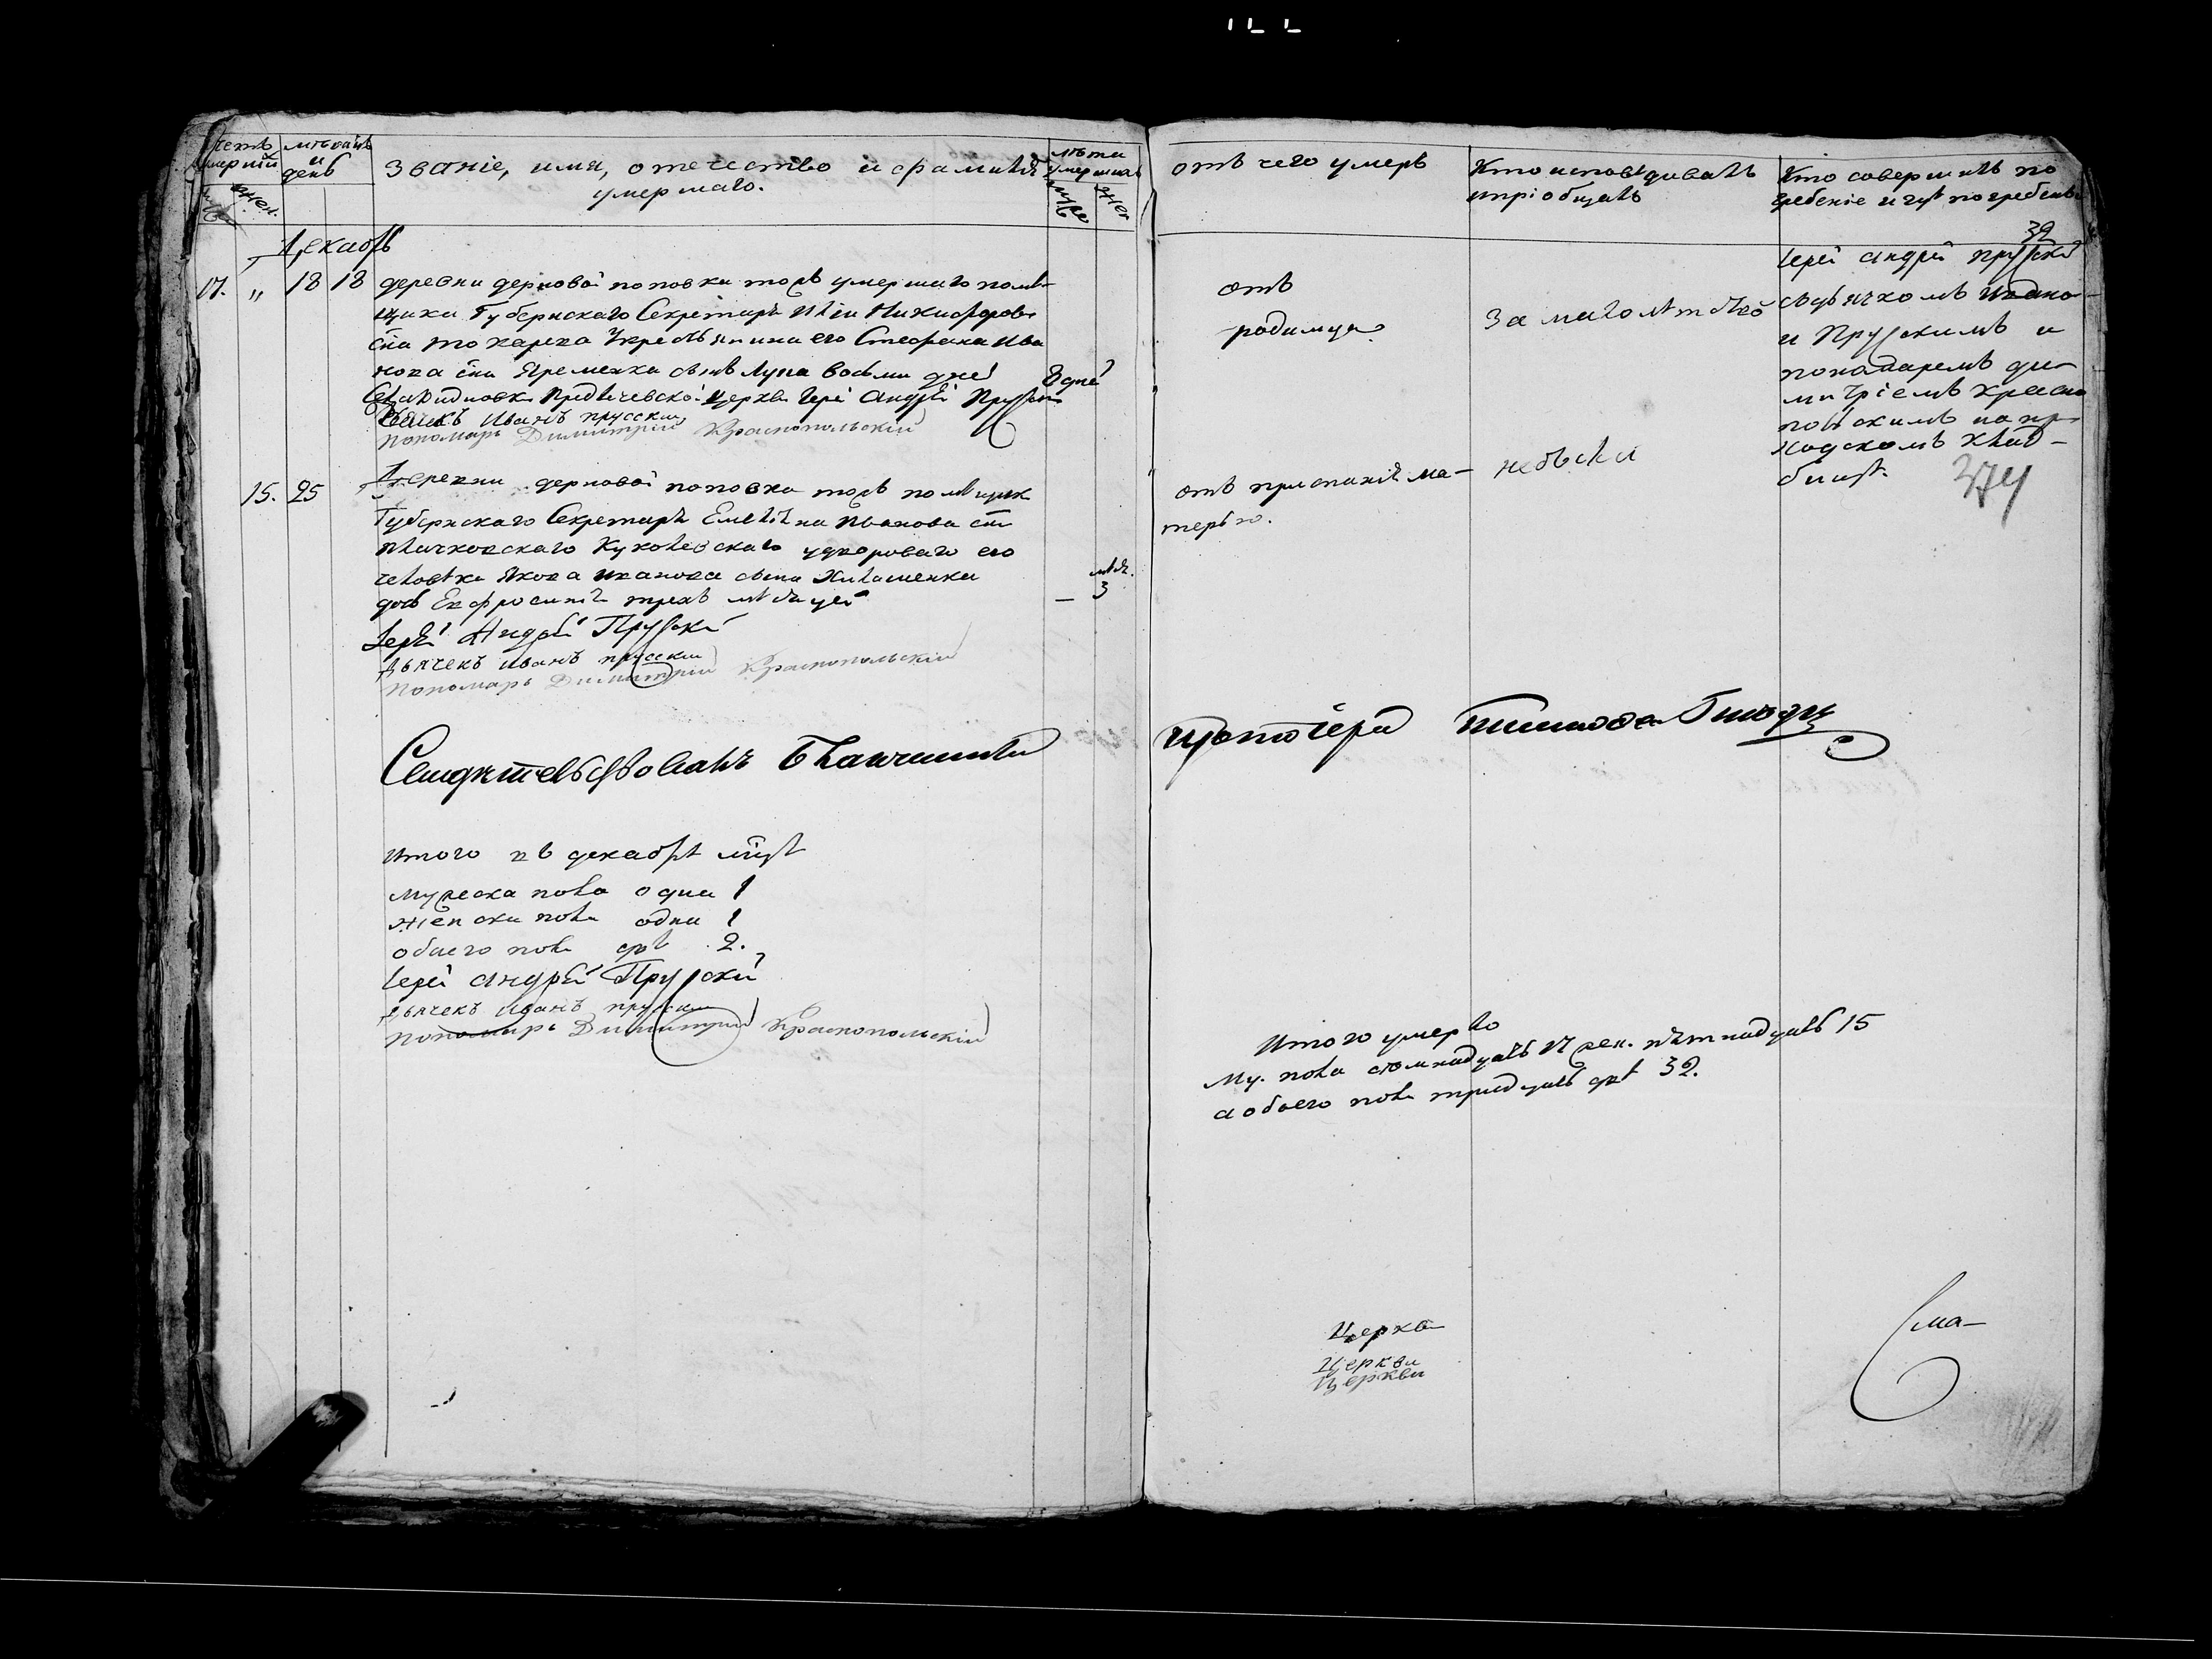 Счетъ умершій
мѣсяцъ и день
Званіе, имя, отечество и фамилія умершаго.
лѣта умершихъ
муж
жен.
отъ чего умеръ
Кто исповѣдивалъ
ипріобщалъ
Кто совершилъ по
гребеніе и гдѣ погребены
32
Декабрь
17. „ 18 18 деревни дерновой поповки тожъ умершаго помѣ-
щика Губернскаго Секретаря Иліи Никифорова
сна крестьянина его Стефана Ива
нова сна Яременка сынъ Лупа восьми дней
8 дней
Предтечевской Церкви Іерей Андрей Прусскій
Дьячекъ Иванъ прусскии
Пономарь Димитрій Краснопольскій
отъ
родимца
За малолѣтство
Іерей Андрей Прусскій
съ дьячкомъ Ивано-
м Прусскимъ и
пономаремъ ди-
митріемъ красно
польскимъ на при
ходскомъ клад-
бищѣ.
374
15. 25 Деревни дерновой поповка тожъ помѣщика
Губернскаго Секретаря Емеліяна Иванова сна
его
человѣка Якова Иванова сына
дочь Евфросинія трехъ мѣсяцей
мѣс.
— 3
Іерей Андрей Прусскій
Дьячекъ Иванъ прусскии
Пономарь Димитрій Краснопольскій
отъ приспанія ма-
терью.
Свидѣтельствовалъ Благочинный
Протоіерей
Итого въ декабрѣ мцѣ
Мужеска пола одна 1
женска пола одна 1
обоего пола двѣ 2.
Іерей Андрей Прусскій
Дьячекъ Иванъ прусскии
Пономарь Димитрій Краснопольскій
Итого умерло
Му. пола семнадцать 17 жен. пѣтнадцать 15
а обоего пола тридцать двѣ 32.
Церкви
Церкви
Церкви